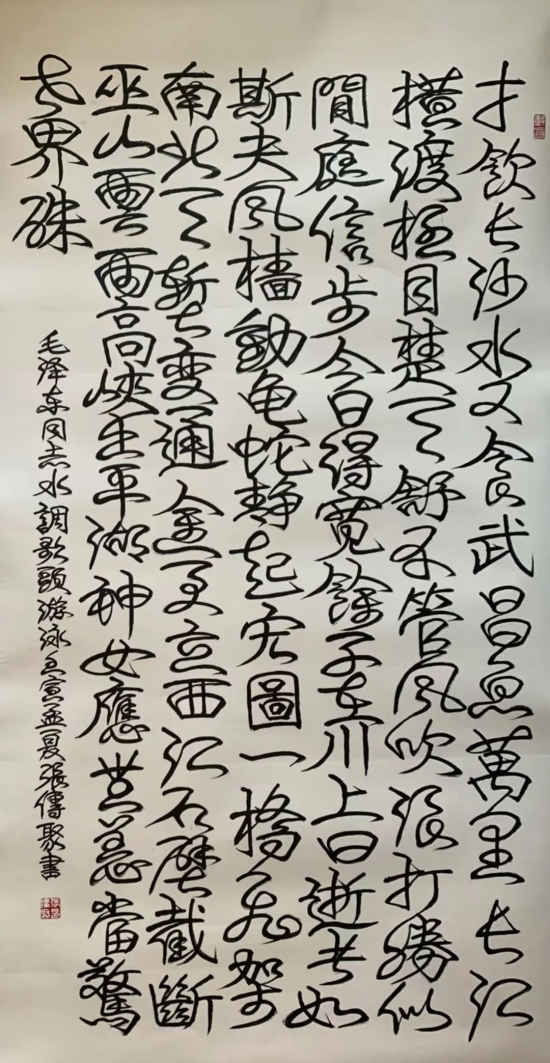 才飲长沙水又食武昌魚萬里长江
橫渡極目楚天舒不管風吹浪打勝似
閒庭信步今日得寬餘子在川上曰逝者如
斯夫風檣動龟蛇静起宏圖一橋飛架
南北天塹变通途更立西江石壁截斷
巫山雲雨高峽出平湖神女應無恙當驚
世界殊
毛泽东同志水調歌頭游泳壬寅孟夏張傳聚書